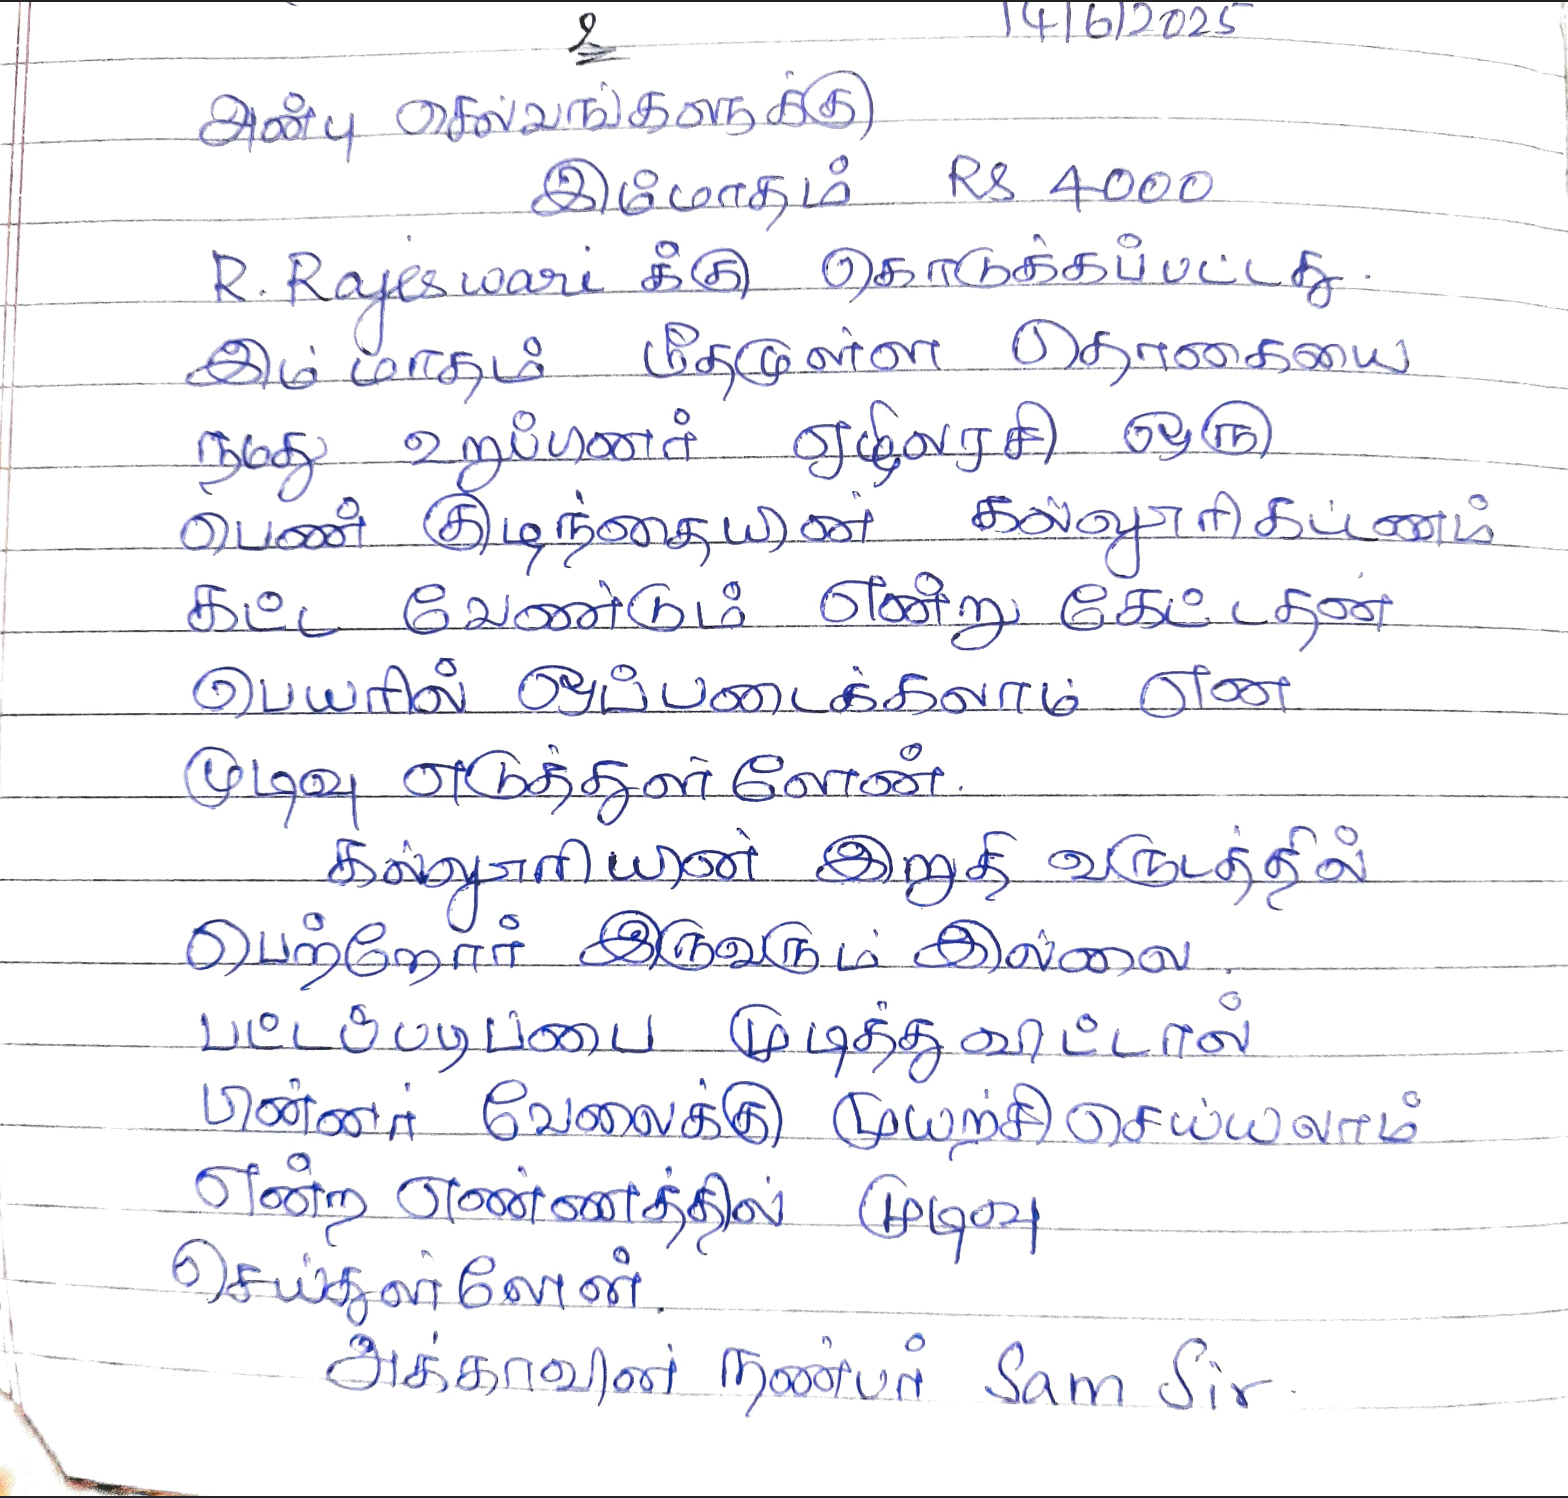 உ 14/6/2025
அன்பு செல்வங்களுக்கு
இம்மாதம் RS 4000
R. Rajeswari க்கு கொடுக்கப்பட்டது.
இம் மாதம் மீதமுள்ள தொகையை
நமது உறுப்பினர் எழிலரசி ஒரு
பெண் குழந்தையின் கல்லூரிகட்டணம்
கட்ட வேண்டும் என்று கேட்டதன்
பெயரில் ஒப்படைக்கலாம் என
முடிவு எடுத்துள்ளேன்.
கல்லூரியின் இறுதி வருடத்தில்
பெற்றோர் இருவரும் இல்லை.
பட்டப்படிப்பை முடித்து விட்டால்
பின்னர் வேலைக்கு முயற்சி செய்யலாம்
என்ற எண்ணத்தில் முடிவு
செய்துள்ளேன்.
அக்காவின் நண்பர் Sam Sir.